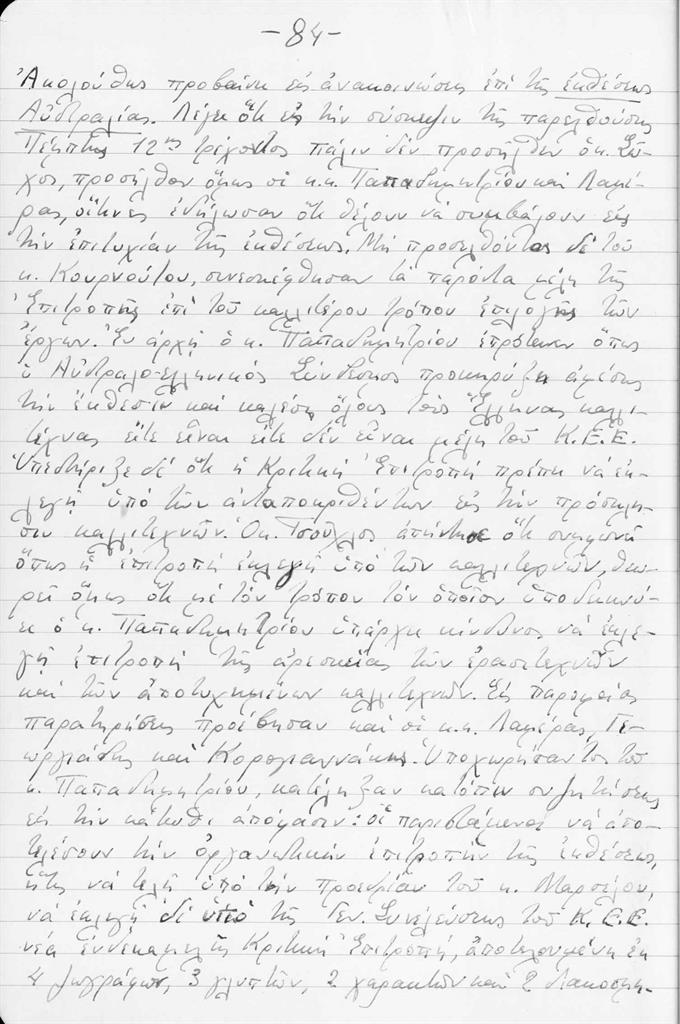 -84-
Ἀκολούθως προβαίνει εἰς ἀνακοινώσεις ἐπὶ τῆς ἐκθέσεως
Αὐστραλίας. Λέγει ὅτι εἰς τὴν σύσκεψιν τῆς παρελθούσης
Πέμπτης 12ης τρέχοντος πάλιν δὲν προσῆλθεν ὁ κ.
προσῆλθον ὅμως οἱ κ.κ. Παπαδημητρίου καὶ Λαμέ-
ρας, οἵτινες ἐδήλωσαν ὅτι θέλουν νὰ συμβάλουν εἰς
τὴν ἐπιτυχίαν τῆς ἐκθέσεως. Μὴ προσελθόντος δὲ τοῦ
κ. Κουρνούτου, συνεσκέφθησαν τὰ παρόντα μέλη τῆς
Ἐπιτροπῆς ἐπὶ τοῦ καλλιτέρου τρόπου ἐπιλογῆς τῶν
ἔργων. Ἐν ἀρχῇ ὁ κ. Παπαδημητρίου ἐπρότεινεν ὅπως
ὁ Αὐστραλο-ελληνικός Σύνδεσμος προκηρύξῃ ἀμέσως
τὴν ἔκθεσιν καὶ καλέσῃ ὅλους τοὺς Ἕλληνας καλλι-
τέχνας εἴτε εἶναι εἴτε δὲν εἶναι μέλη τοῦ Κ.Ε.Ε.
Ὑπεστήριξε δὲ ὅτι ἡ Κριτικὴ Ἐπιτροπὴ πρέπει νὰ ἐκ-
λεγῇ ὑπὸ τῶν ἀνταποκριθέντων εἰς τὴν πρόσκλη-
σιν καλλιτεχνῶν. Ὁ κ. Τσοῦχλος ἀπήντησε ὅτι συμφωνεῖ
ὅπως ἡ ἐπιτροπὴ ἐκλεγῇ ὑπὸ τῶν καλλιτεχνῶν, θεω-
ρεῖ ὅμως ὅτι μὲ τὸν τρόπον τὸν ὁποῖον ὑποδεικνύ-
ει ὁ κ. Παπαδημητρίου ὑπάρχει κίνδυνος νὰ ἐκλε-
γῇ ἐπιτροπὴ τῆς ἀρεσκείας τῶν ἐρασιτεχνῶν
καὶ τῶν ἀποτυχημένων καλλιτεχνῶν. Εἰς παρομοίας
παρατηρήσεις προέβησαν καὶ οἱ κ.κ. Λαμέρας, Γε-
ωργιάδης καὶ Κορογιαννάκης. Ὑποχωρήσαντος τοῦ
κ. Παπαδημητρίου, κατέληξαν κατόπιν συζητήσεως
εἰς τὴν κάτωθι ἀπόφασιν: οἱ παριστάμενοι νὰ ἀπο-
τελέσουν τὴν ὀργανωτικὴν ἐπιτροπὴν τῆς ἐκθέσεως,
ἥτις νὰ τελῇ ὑπὸ τὴν προεδρίαν τοῦ κ. Μαρσέλου,
νὰ ἐκλεγῇ δὲ ὑπὸ τῆς Γεν. Συνελεύσεως τοῦ Κ.Ε.Ε.
νέα ἑνδεκαμελὴς Κριτικὴ Ἐπιτροπή, ἀποτελουμένη ἐκ
4 ζωγράφων, 3 γλυπτῶν, 2 χαρακτῶν καὶ 2 διακοσμη-